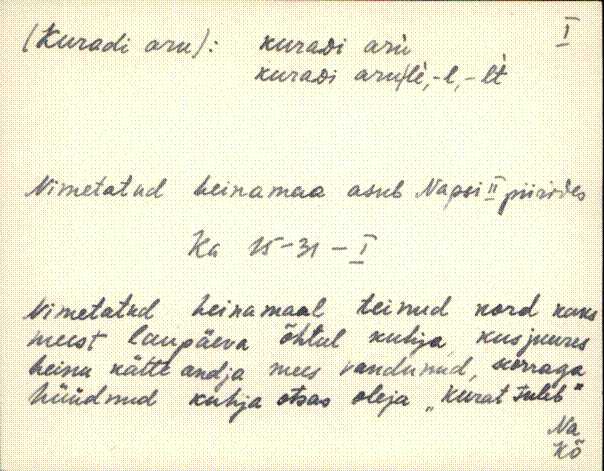 (Kuradi aru): kuradi arù̬ I
kuradi aru/lè, -l, -lt
Nimetatud heinamaa asub Napsi II piirides
Ka 15-31-I
Nimetatud heinamaal teinud kord kaks
meest laupäeva õhtul kuhja, kusjuures
heinu kätte andja mees vandunud, korraga
hüüdnud kuhja otsas oleja „Kurat tuleb"
Na
Kõ